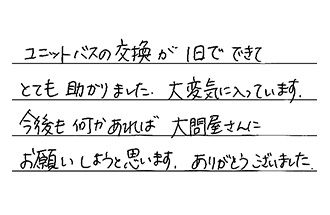 ユニットバスの交換が1日でできて
とても助かりました. 大変気に入っています.
今後も何かあれば大問屋さんに
お願いしようと思います. ありがとうございました.